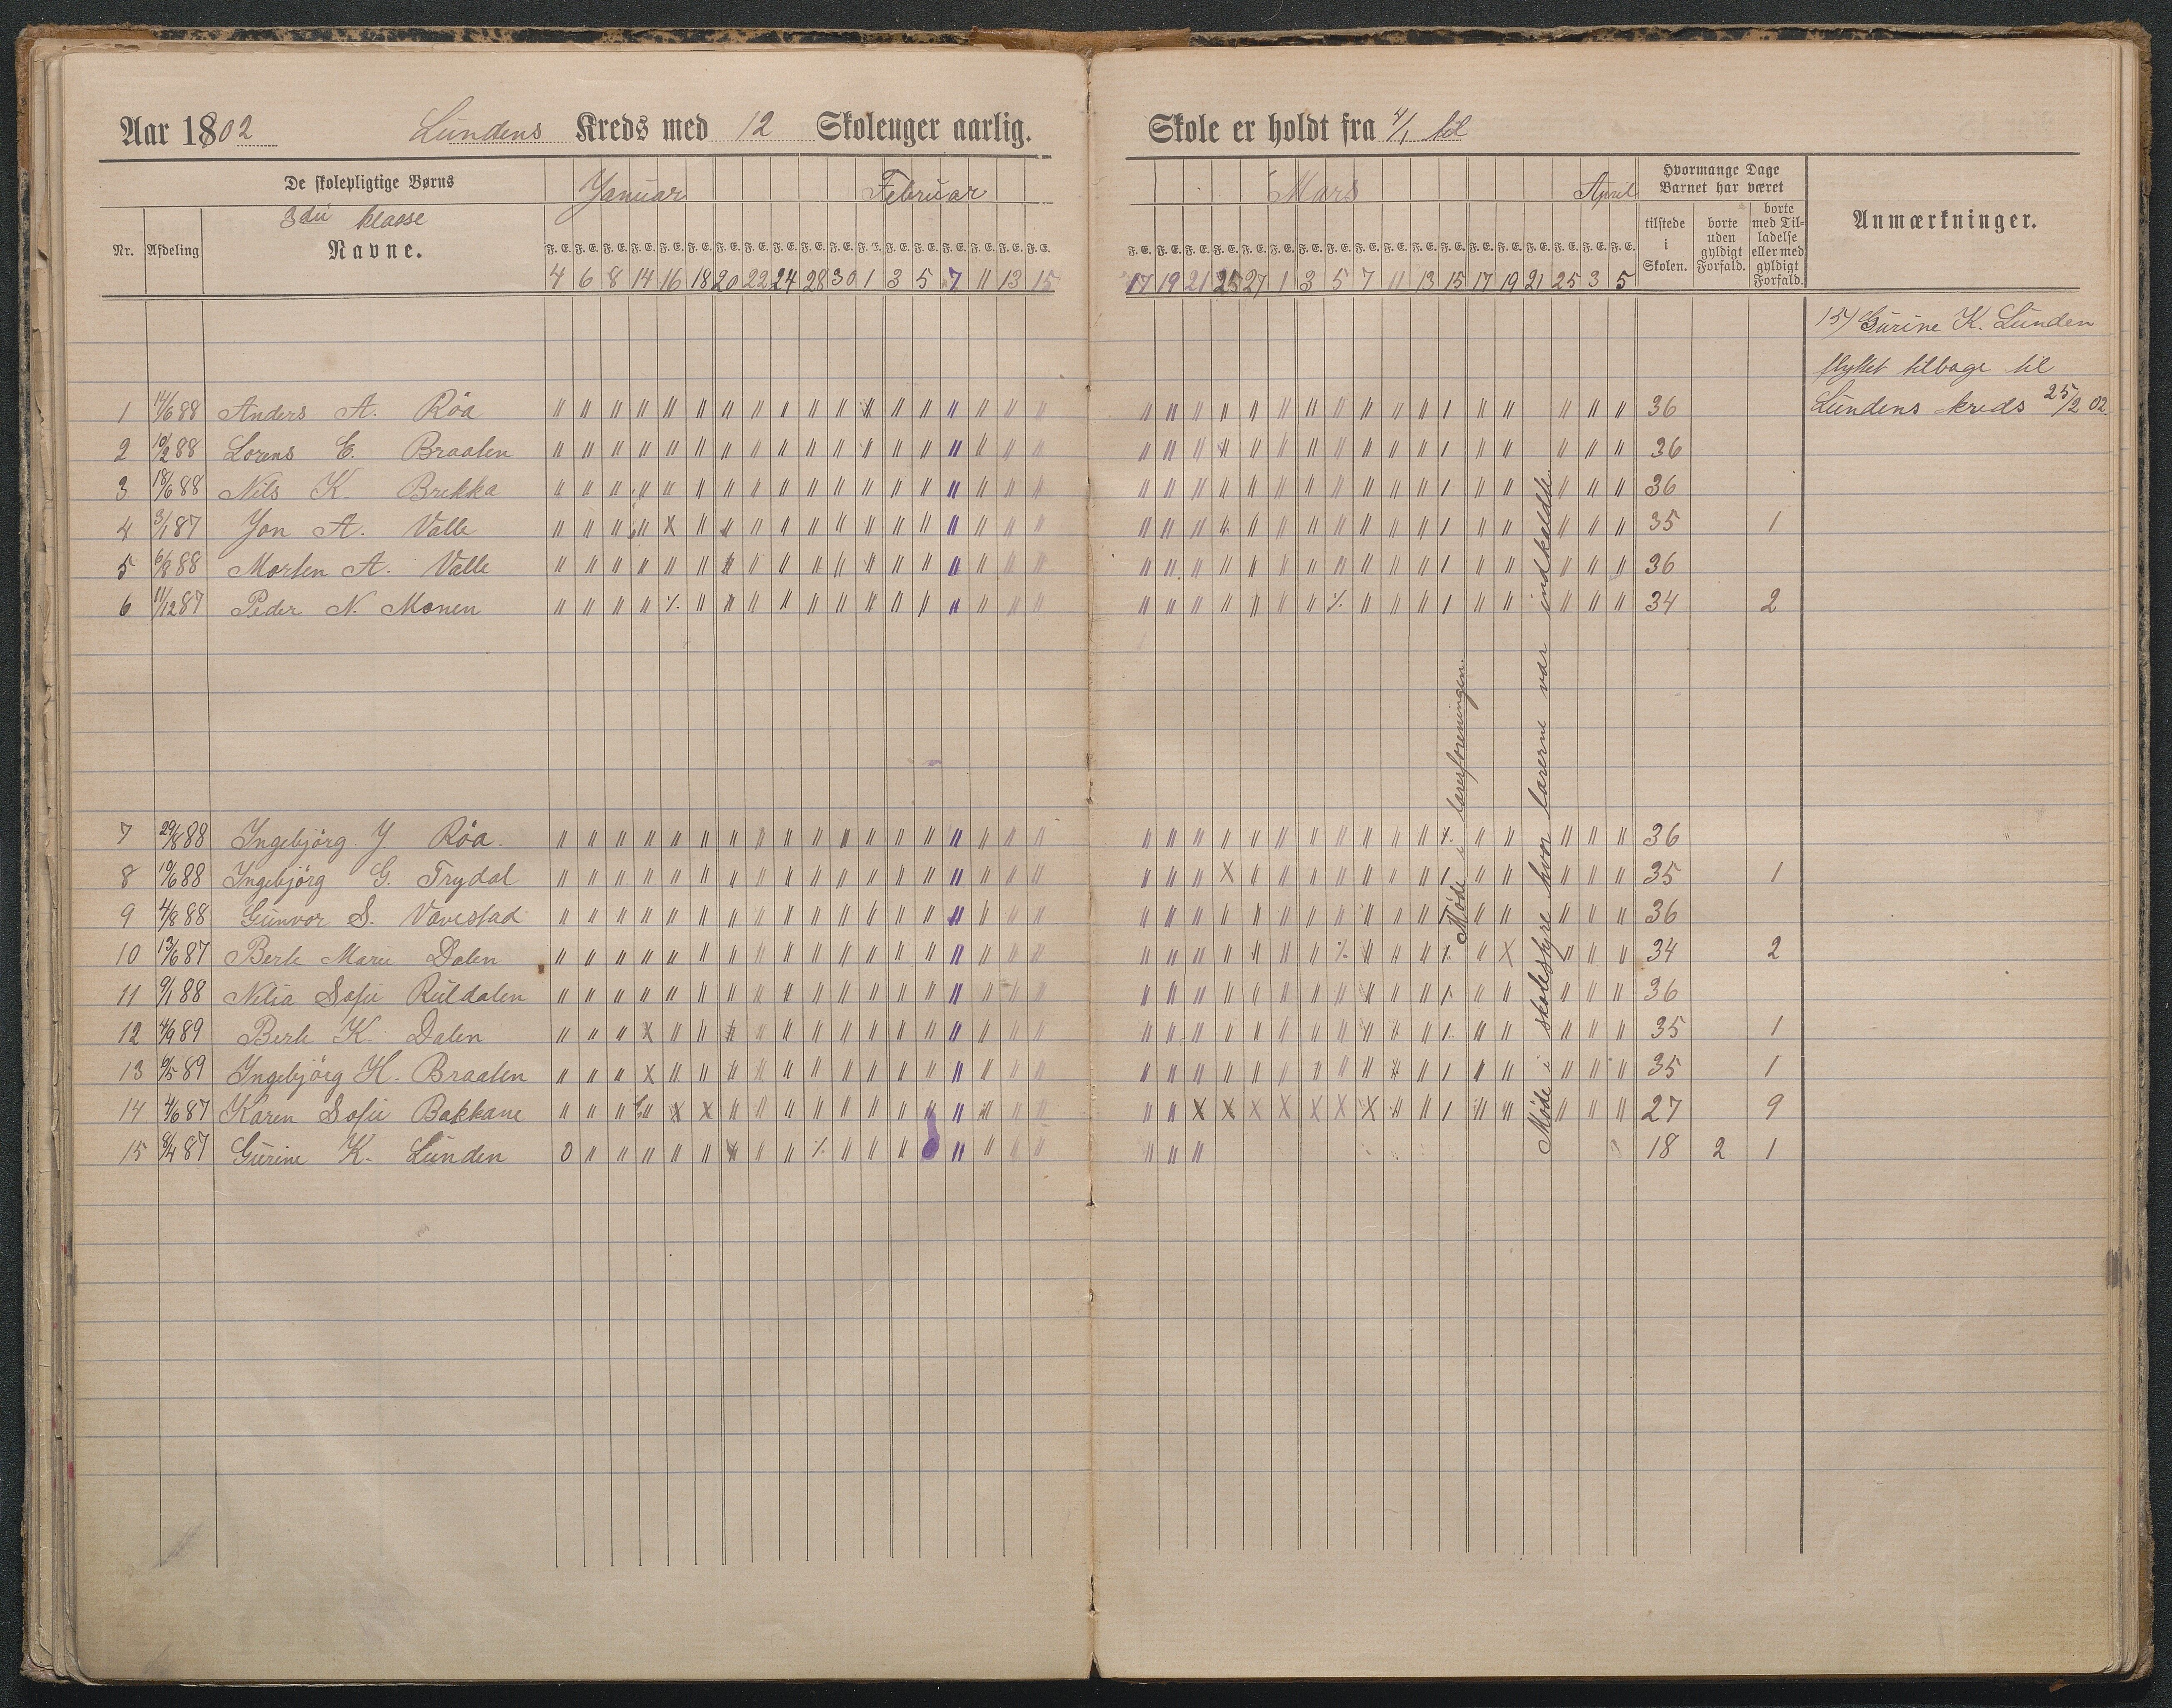 Aar 1802 Lundens Kreds med 12 Skoleuger aarlig.
De skolepligtige Børns Januar Februar
3die klasse
Nr. Afdeling Navne. F. E. F. E. F. E. F. E. F. E. F. E. F. E. F. E. F. E. F. E. F. E. F. E. F. E. F. E. F. E. F. E. F. E. F. E.
4 6 8 14 16 18 20 22 24 28 30 1 3 5 7 11 13 15
1 14/6 88 Anders A. Röa
2 10/2 88 Lorens E. Braaten
3 18/6 88 Nils K. Brekka
4 3/1 87 Jon A. Valle
5 6/8 88 Morten A. Valle
6 11/12 87 Peder N. Monen
7 29/8 88 Ingebjörg J. Röa.
8 19/6 88 Ingebjörg G. Trydal
9 4/8 88 Gunvor S. Vævestad
10 13/6 87 Berte Marie Dalen
11 9/1 88 Nilia Sofie Rüldalen
12 4/9 89 Berte K. Dalen
13 9/5 89 Ingebjörg H. Braaten
14 4/6 87 Karen Sofie Bakkane
15 8/4 87 Gurine K. Lunden
Skole er holdt fra 4/1 til
Mars April Hvormange Dage Barnet har været
F. E. F. E. F. E. F. E. F. E. F. E. F. E. F. E. F. E. F. E. F. E. F. E. F. E. F. E. F. E. F. E. F. E. F. E. tilstede i Skolen. borte uden gyldigt Forfald. borte med Tilladelse eller med gyldigt Forfald. Anmærkninger.
17 19 21 25 27 1 3 5 7 11 13 15 17 19 21 25 3 5
15) Gurine K. Lunden
flyttet tilbage til
Lundens kreds 25/2 02.
36
36
36
35 1
36
34 2
36
35 1
36
34 2
36
35 1
35 1
27 9
18 2 1
Møde i lærerforeningen.
Møde i skolestyre hvor lærerne var indkaldte.